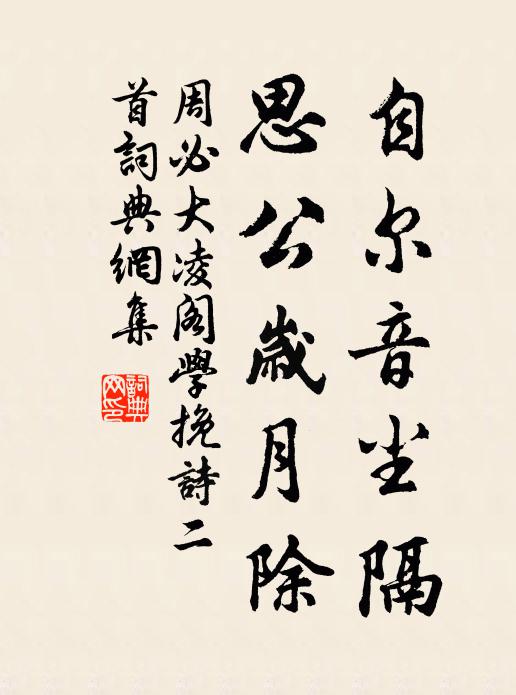 自尔音尘隔
思公歲月除
周必大凌阁學挽詩二
首詞典網集
詞典
网印